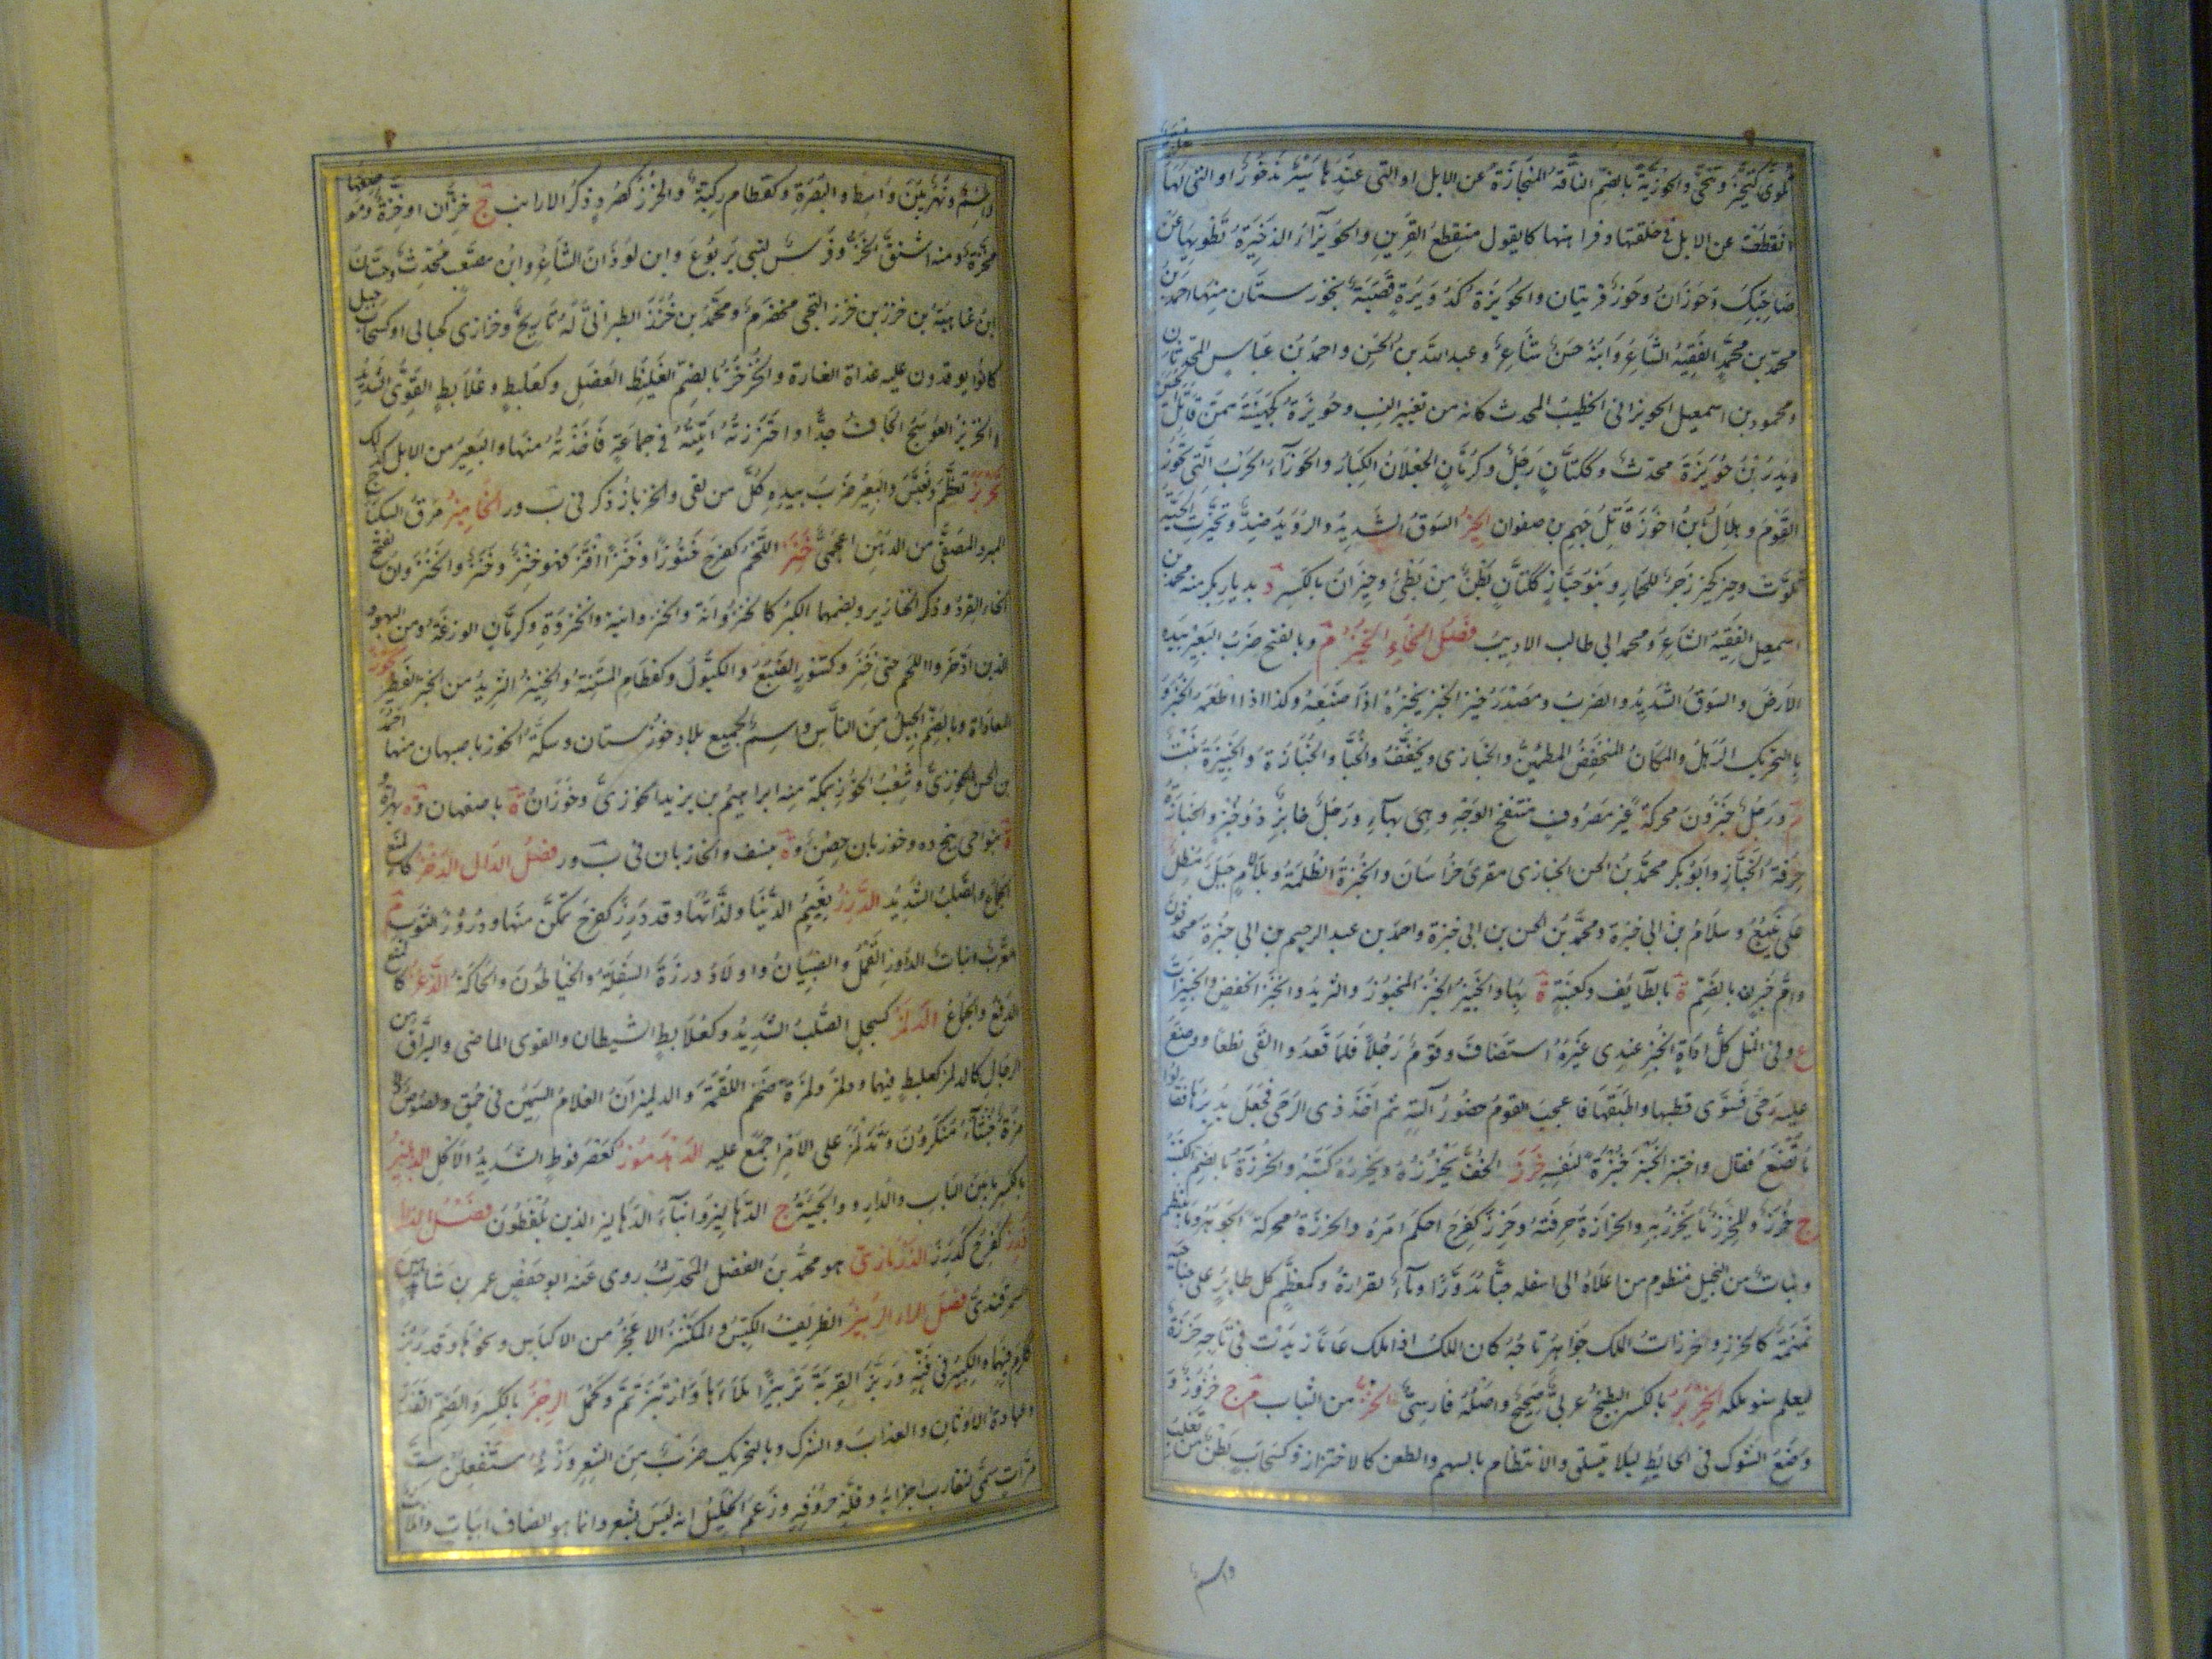 تلوى كتحيز وتنحى والحوزية بالضم الناقة المنحازة عن الابل او التى عندها سير مذخور او التى لها خلفة
انقطعت عن الابل فى خلفتها وفراهتها كما يقول منقطع القرين والحويزاء الذخيرة تطويها عن
صاحبك وحوزان وحوز قريتان والحويزة كدويرة قصبة بخوزستان منها احمد بن
محمد بن محمد الفقيه الشاعر وابنه حسن شاعر وعبد الله بن الحسن واحمد بن عباس المحدثان
ومحمود بن اسمعيل الحويزانى الخطيب المحدث كانه من تغيير النسب وحويزة كجهينة ممن قاتل الحسين
وبدر بن حويزة محدث وككتان رجل وكرمان الجعلان الكبار والحوزاء الحرب التى تحوز
القوم وهلال بن احوز قاتل جهم بن صفوان الحيز السوق الشديد والرويد ضد وتحيزت الحية
تلوت وحيز كحيز زجر للحمار وبنو حياز ككتان بطن من طيئ وحيزان بالكسر د بديار بكر منه محمد بن
اسمعيل الفقيه الشاعر ومحمد ابى طالب الاديب فصل الخاء الخبز م وبالفتح ضرب البعير بيده
الارض والسوق الشديد والضرب ومصدر خبز الخبز يخبزه اذا صنعه وكذا اذا اطعمه الخبز و
بالتحريك الرهل والمكان المنخفض المطمئن والخبازى ويخفف والخباز والخبازة والخبيزة نبت
م ورجل خبزون محركة غير مصروف منتفخ الوجه وهى بهاء ورجل خابز ذو خبز والخبازة
حرفة الخباز وابو بكر محمد بن الحسن الخبازى مقرئ خراسان والخبزة الظلمة وبلا لام جبل مطل
على ينبع وسلام بن ابى خبزة ومحمد بن الحسن بن ابى خبزة واحمد بن عبد الرحيم بن ابى خبزة محدثون
وام خبز بالضم ة بالطائف وكعنبة ة بها والخبيز الخبز المخبوز والثريد والخبز الخفض والخبيزات
ع وفى المثل كل اداة الخبز عندى غيره استضاف قوم رجلا فلما قعدوا القى نطعا ووضع
عليه رحى فسوى قطبها واطبقها فاعجب القوم حضور آلته ثم اخذ ذى الرحى فجعل يديرها فقالوا
ما تصنع فقال واختبز الخبز خبزه لنفسه خرز الخف يخرزه ويخرزه كتبه والخرزة بالضم الكتبة
ج خرز والمخرز ما يخرز به والخرازة حرفته وخرز كفرح احكم امره والخرزة محركة الجوهر وما ينظم
ونبات من النجيل منظوم من اعلاه الى اسفله حبا مدورا وماء لفزارة وكمعظم كل طائر على جناحيه
نمنمة كالخرز وخرزات الملك جواهر تاجه كان الملك اذا ملك عاما زيدت فى تاجه خرزة
ليعلم سنو ملكه الخربز بالكسر البطيخ عربى صحيح واصله فارسى الخز من الثياب م ج خزوز و
وضع الشوك فى الحايط ليلا يتسلق والانتظام بالسهم والطعن كالاختزاز وكسحاب بطن من تغلب
واسم
واسم ونهر بين واسط والبصرة وكقطام ركية والخزز كصرد ذكر الارانب ج خزان او خزة وموضعها
مخزة ومنه اشتق الخز وفرس لبنى يربوع وابن لوذان الشاعر وابن مصعب محدث وحسان
بن عاهية بن خزز بن خزز التجيبى مخضرم ومحمد بن خزز الطبرانى له تاريخ وخزازى كحبالى او كسحاب جبل
كانوا يوقدون عليه غداة الغارة والخزخز بالضم الغليظ العضل وكعلبط وعلابط القوى الشديد
والخزيز العوسج الجاف جدا واختززته اتيته فى جماعة فاخذته منها والبعير من الابل كذلك
تعظم وتعبس والبعير ضرب بيده كل من لقى والخزباز ذكر فى ب و ز الخاميز مرق السكباج
المبرد المصفى من الدهن اعجمى خنز اللحم كفرح خنوزا وخنزا انتن فهو خنز وخنز والخنزوان بفتح
الخاء القرد وذكر الخنازير وبضمها الكبر كالخنزوانة والخنزوانية والخنزوة وكرمان الوزغة ومن اليهود
الذين ادخروا اللحم حتى خنز وكتنور الضبع والكيول وكقطام المنتنة والخنيز الثريد من الخبز الفطير الخوز
المعاداة وبالضم الجيل من الناس واسم لجميع بلاد خوزستان وسكة الخوز باصبهان منها احمد
بن الحسن الخوزى وشعب الخوز بمكة منه ابراهيم بن يزيد الخوزى وخوزان ة باصفهان وة بهراة و
ة بنواحى پنج ده وخوزيان حصن وة بنسف والخازباز فى ب و ز فصل الدال الدخز كالمنع
الجماع والصلب الشديد الدرز نعيم الدنيا ولذاتها وقد درز كفرح تمكن منها ودروز الثوب م
معرب وبنات الدروز القمل والصئبان واولاد درزة السفلة والخياطون والحاكة الدعز كالمنع
الدفع والجماع الدلمز كسبحل الصلب الشديد وكعلابط الشيطان والقوى الماضى والبراق من
الرجال كالدلمز كعلبط فيهما ودلمز دلمزة ضخم اللقمة والدليمزان الغلام السمين فى حمق ولصوص
مردة خبثاء منكرون وتدلمز على الامر اجمع عليه الدهدموز كعضرفوط الشديد الاكل الدهليز
بالكسر ما بين الباب والدار والجيئة ج الدهاليز وابناء الدهاليز الذين يلتقطون فصل الذال
ذرز كفرح كدرز الذرمازى هو محمد بن الفضل المحدث روى عنه ابو حفص عمر بن شاهين
السمرقندى فصل الراء الربيز الظريف الكيس والمكتنز الاعجر من الاكياس ونحوها وقد ربز
ككرم فيهما والكبير فى فنه وربز القربة تربيزا ملاها وارتبز تم وكمل الرجز بالكسر والضم القذر
وعبادة الاوثان والعذاب والشرك وبالتحريك ضرب من الشعر وزنه مستفعلن ست
مرات سمى لتقارب اجزائه وقلة حروفه وزعم الخليل انه ليس بشعر وانما هو انصاف ابيات واثلاث